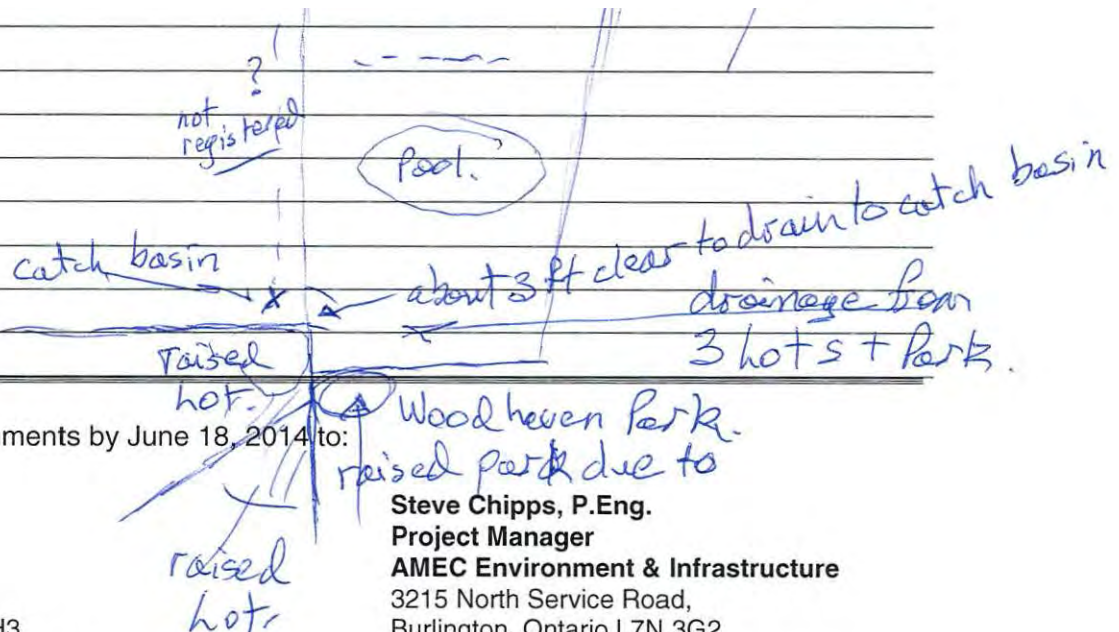 ?
not
registered
Pool.
catch basin
about 3 ft clear to drain to catch basin
drainage from
3 lots + Park.
raised
lot.
Woodhaven Park.
ments by June 18, 2014 to:
raised park due to
Steve Chipps, P.Eng.
Project Manager
AMEC Environment & Infrastructure
raised
lot,
3215 North Service Road,
H3
Burlington, Ontario L7N 3G2